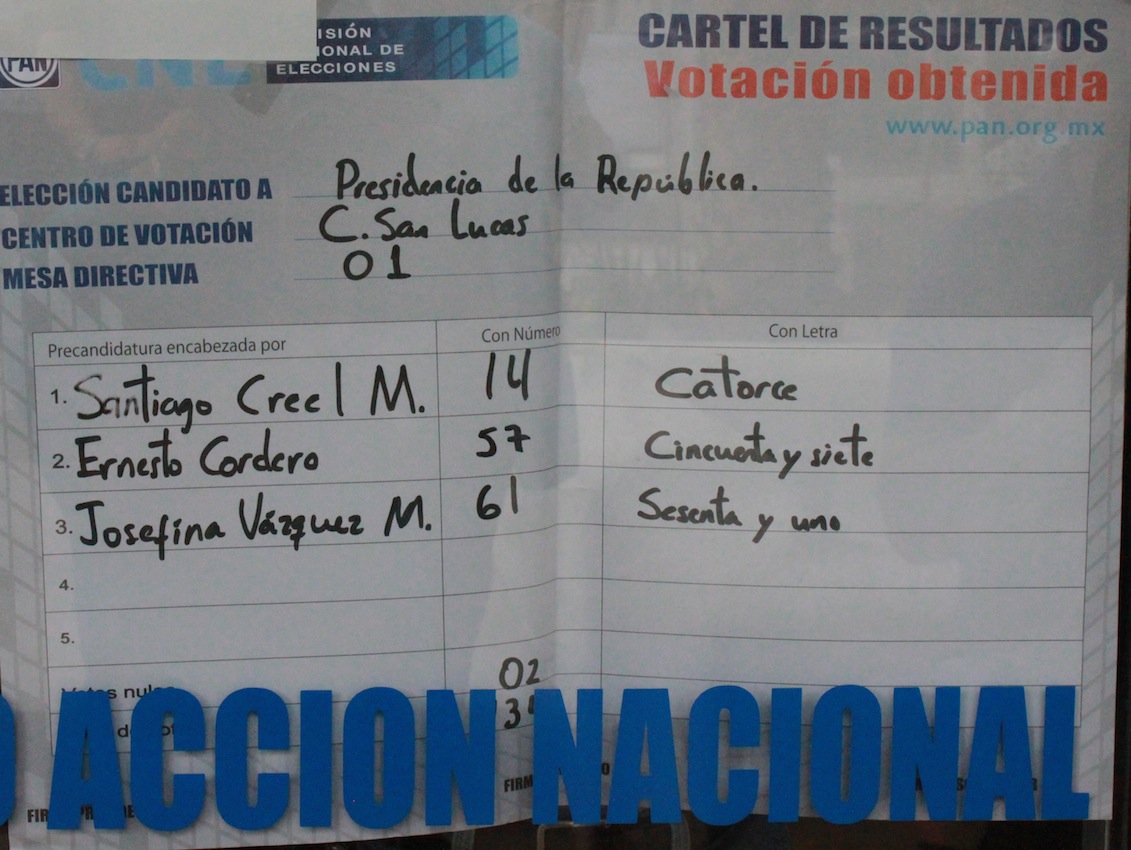 PAN
ELECCIONES
CARTEL DE RESULTADOS
Votación obtenida
www.pan.org.mx
ELECCIÓN CANDIDATO A Presidencia de la República.
CENTRO DE VOTACIÓN C. San Lucas
MESA DIRECTIVA 01
Precandidatura encabezada por Con Número Con Letra
1. Santiago Creel M. 14 Catorce
2. Ernesto Cordero 57 Cincuenta y siete
3. Josefina Vázquez M. 61 Sesenta y uno
4.
5.
02
ACCION NACIONAL